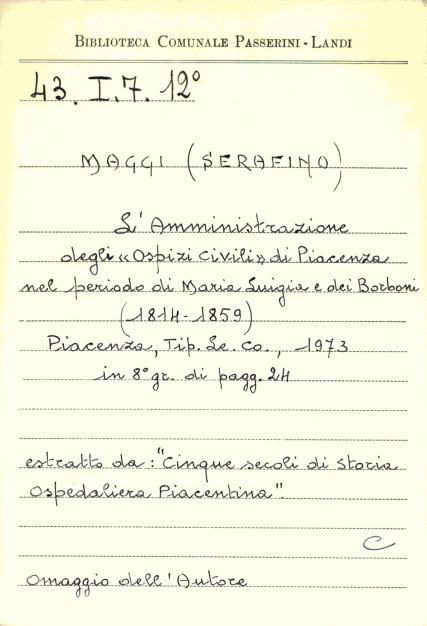 BIBLIOTECA COMUNALE PASSERINI - LANDI
43. I. 7. 12°
MAGGI (SERAFINO)
L'Amministrazione
degli «Ospizi Civili» di Piacenza
nel periodo di Maria Luigia e dei Borboni
(1814-1859)
Piacenza, Tip. Le. Co., 1973
in 8° gr. di pagg. 24
estratto da: "Cinque secoli di Storia
Ospedaliera Piacentina".
C
Omaggio dell'Autore